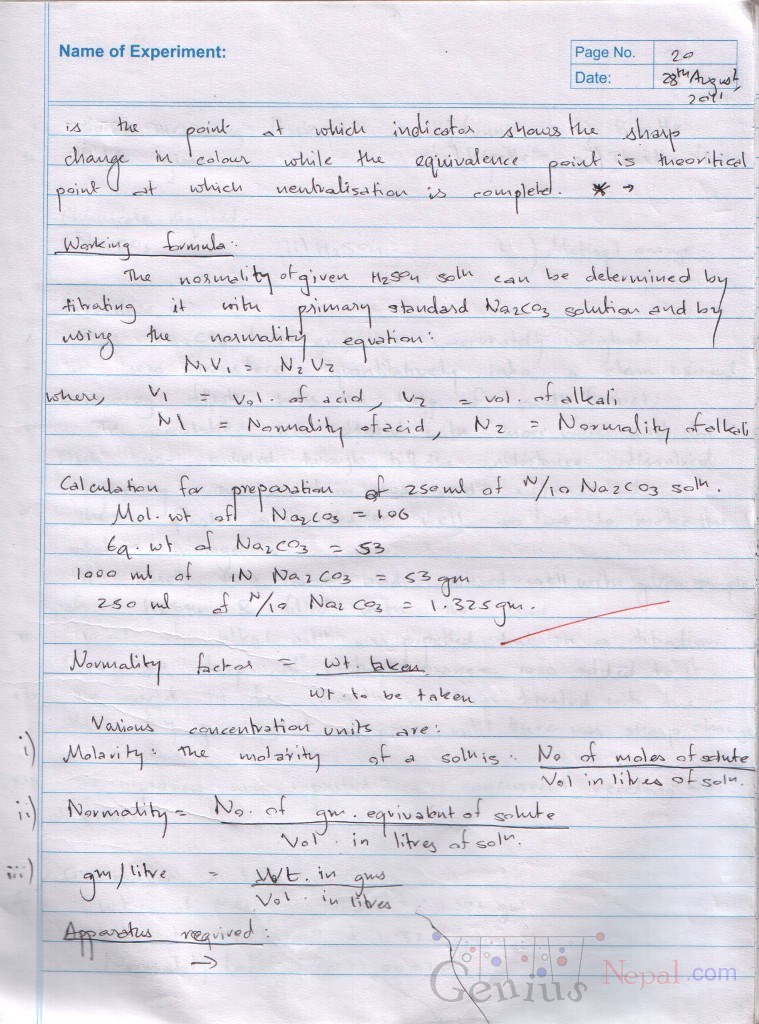 Name of Experiment:
Page No. 20
Date: 28th August, 2011
is the point at which indicator shows the sharp
change in colour while the equivalence point is theoritical
point at which neutralisation is completed. * →
Working formula:
The normality of given H2SO4 soln can be determined by
titrating it with primary standard Na2CO3 solution and by
using the normality equation:
N1V1 = N2V2
where, V1 = vol. of acid, V2 = vol. of alkali
N1 = Normality of acid, N2 = Normality of alkali
Calculation for preparation of 250 ml of N/10 Na2CO3 soln.
Mol. wt of Na2CO3 = 106
Eq. wt of Na2CO3 = 53
1000 ml of 1N Na2CO3 = 53 gm
250 ml of N/10 Na2CO3 = 1.325 gm.
Normality factor = wt. taken
wt. to be taken
Various concentration units are:
i) Molarity: The molarity of a soln is: No of moles of solute
Vol in litres of soln.
ii) Normality = No. of gm. equivalent of solute
Vol. in litres of soln.
iii) gm/litre = Wt. in gms
Vol. in litres
Apparatus required:
→
Genius Nepal.com